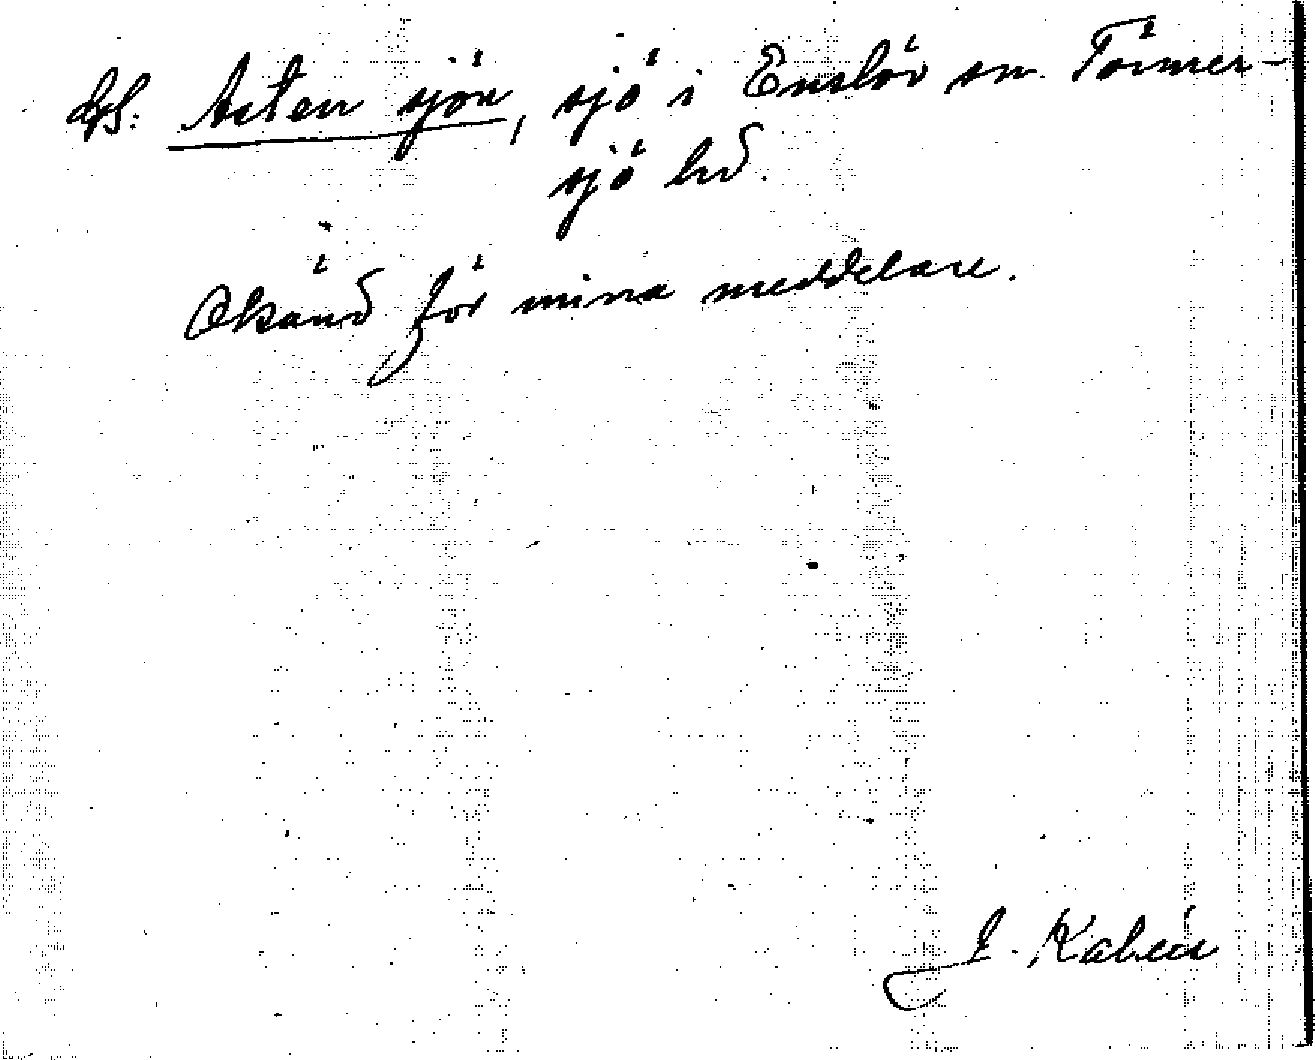 Asten sjön, sjö i Enslöv sn. Tönner-
sjö hd.
Okänd för mina meddelare.
J. Kalén